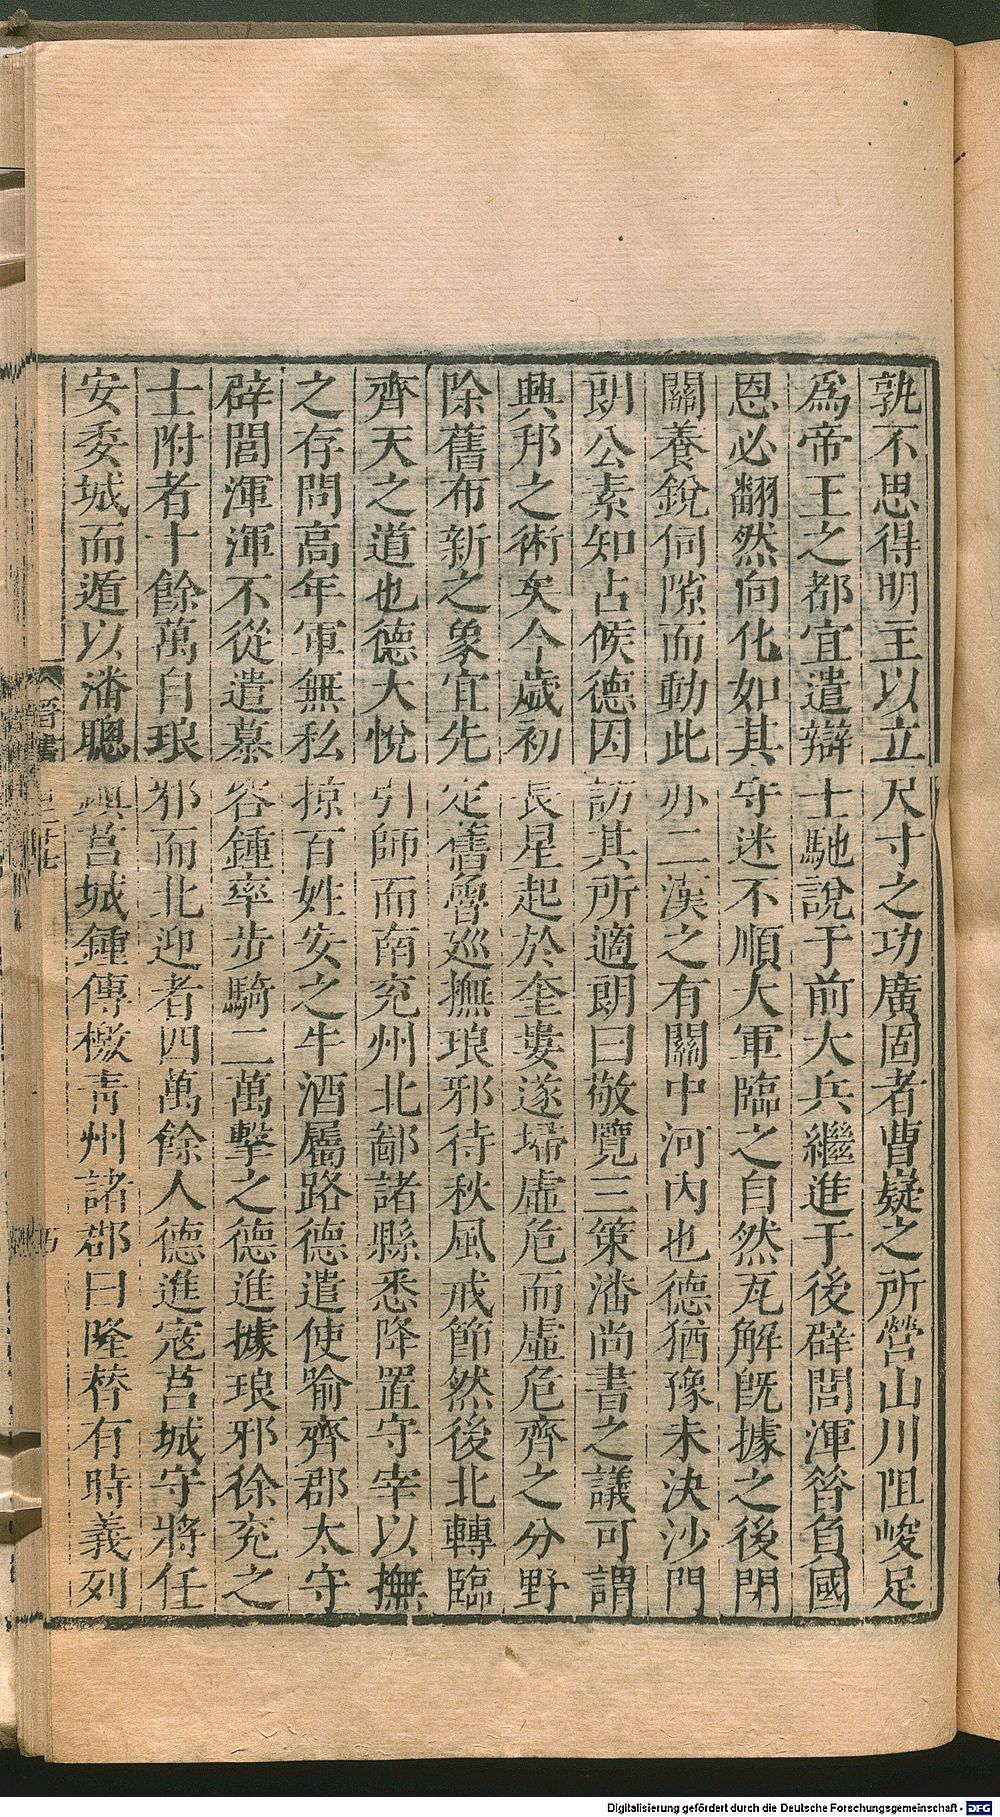 孰不思得明主以立尺寸之功廣固者曹嶷之所營山川阻峻足
爲帝王之都宜遣辯士馳說于前大兵繼進于後辟閭渾昝負國
恩必翻然向化如其守迷不順大軍臨之自然瓦解旣據之後閉
關養銳伺隙而動此亦二漢之有關中河內也德猶豫未決沙門
朗公素知占候德因訪其所適朗曰敬覽三策潘尚書之議可謂
興邦之術矣今歲初長星起於奎婁遂掃虛危而虛危齊之分野
除舊布新之象宜先定舊魯巡撫琅邪待秋風戒節然後北轉臨
齊天之道也德大悅引師而南兖州北鄙諸縣悉降置守宰以撫
之存問高年軍無私掠百姓安之牛酒屬路德遣使喻齊郡太守
辟閭渾渾不從遣慕容鍾率步騎二萬擊之德進據琅邪徐兖之
士附者十餘萬自琅邪而北迎者四萬餘人德進寇莒城守將任
安委城而遁以潘聰鎮莒城鍾傳檄靑州諸郡曰隆替有時義列
晉書
Digitalisierung gefördert durch die Deutsche Forschungsgemeinschaft - DFG